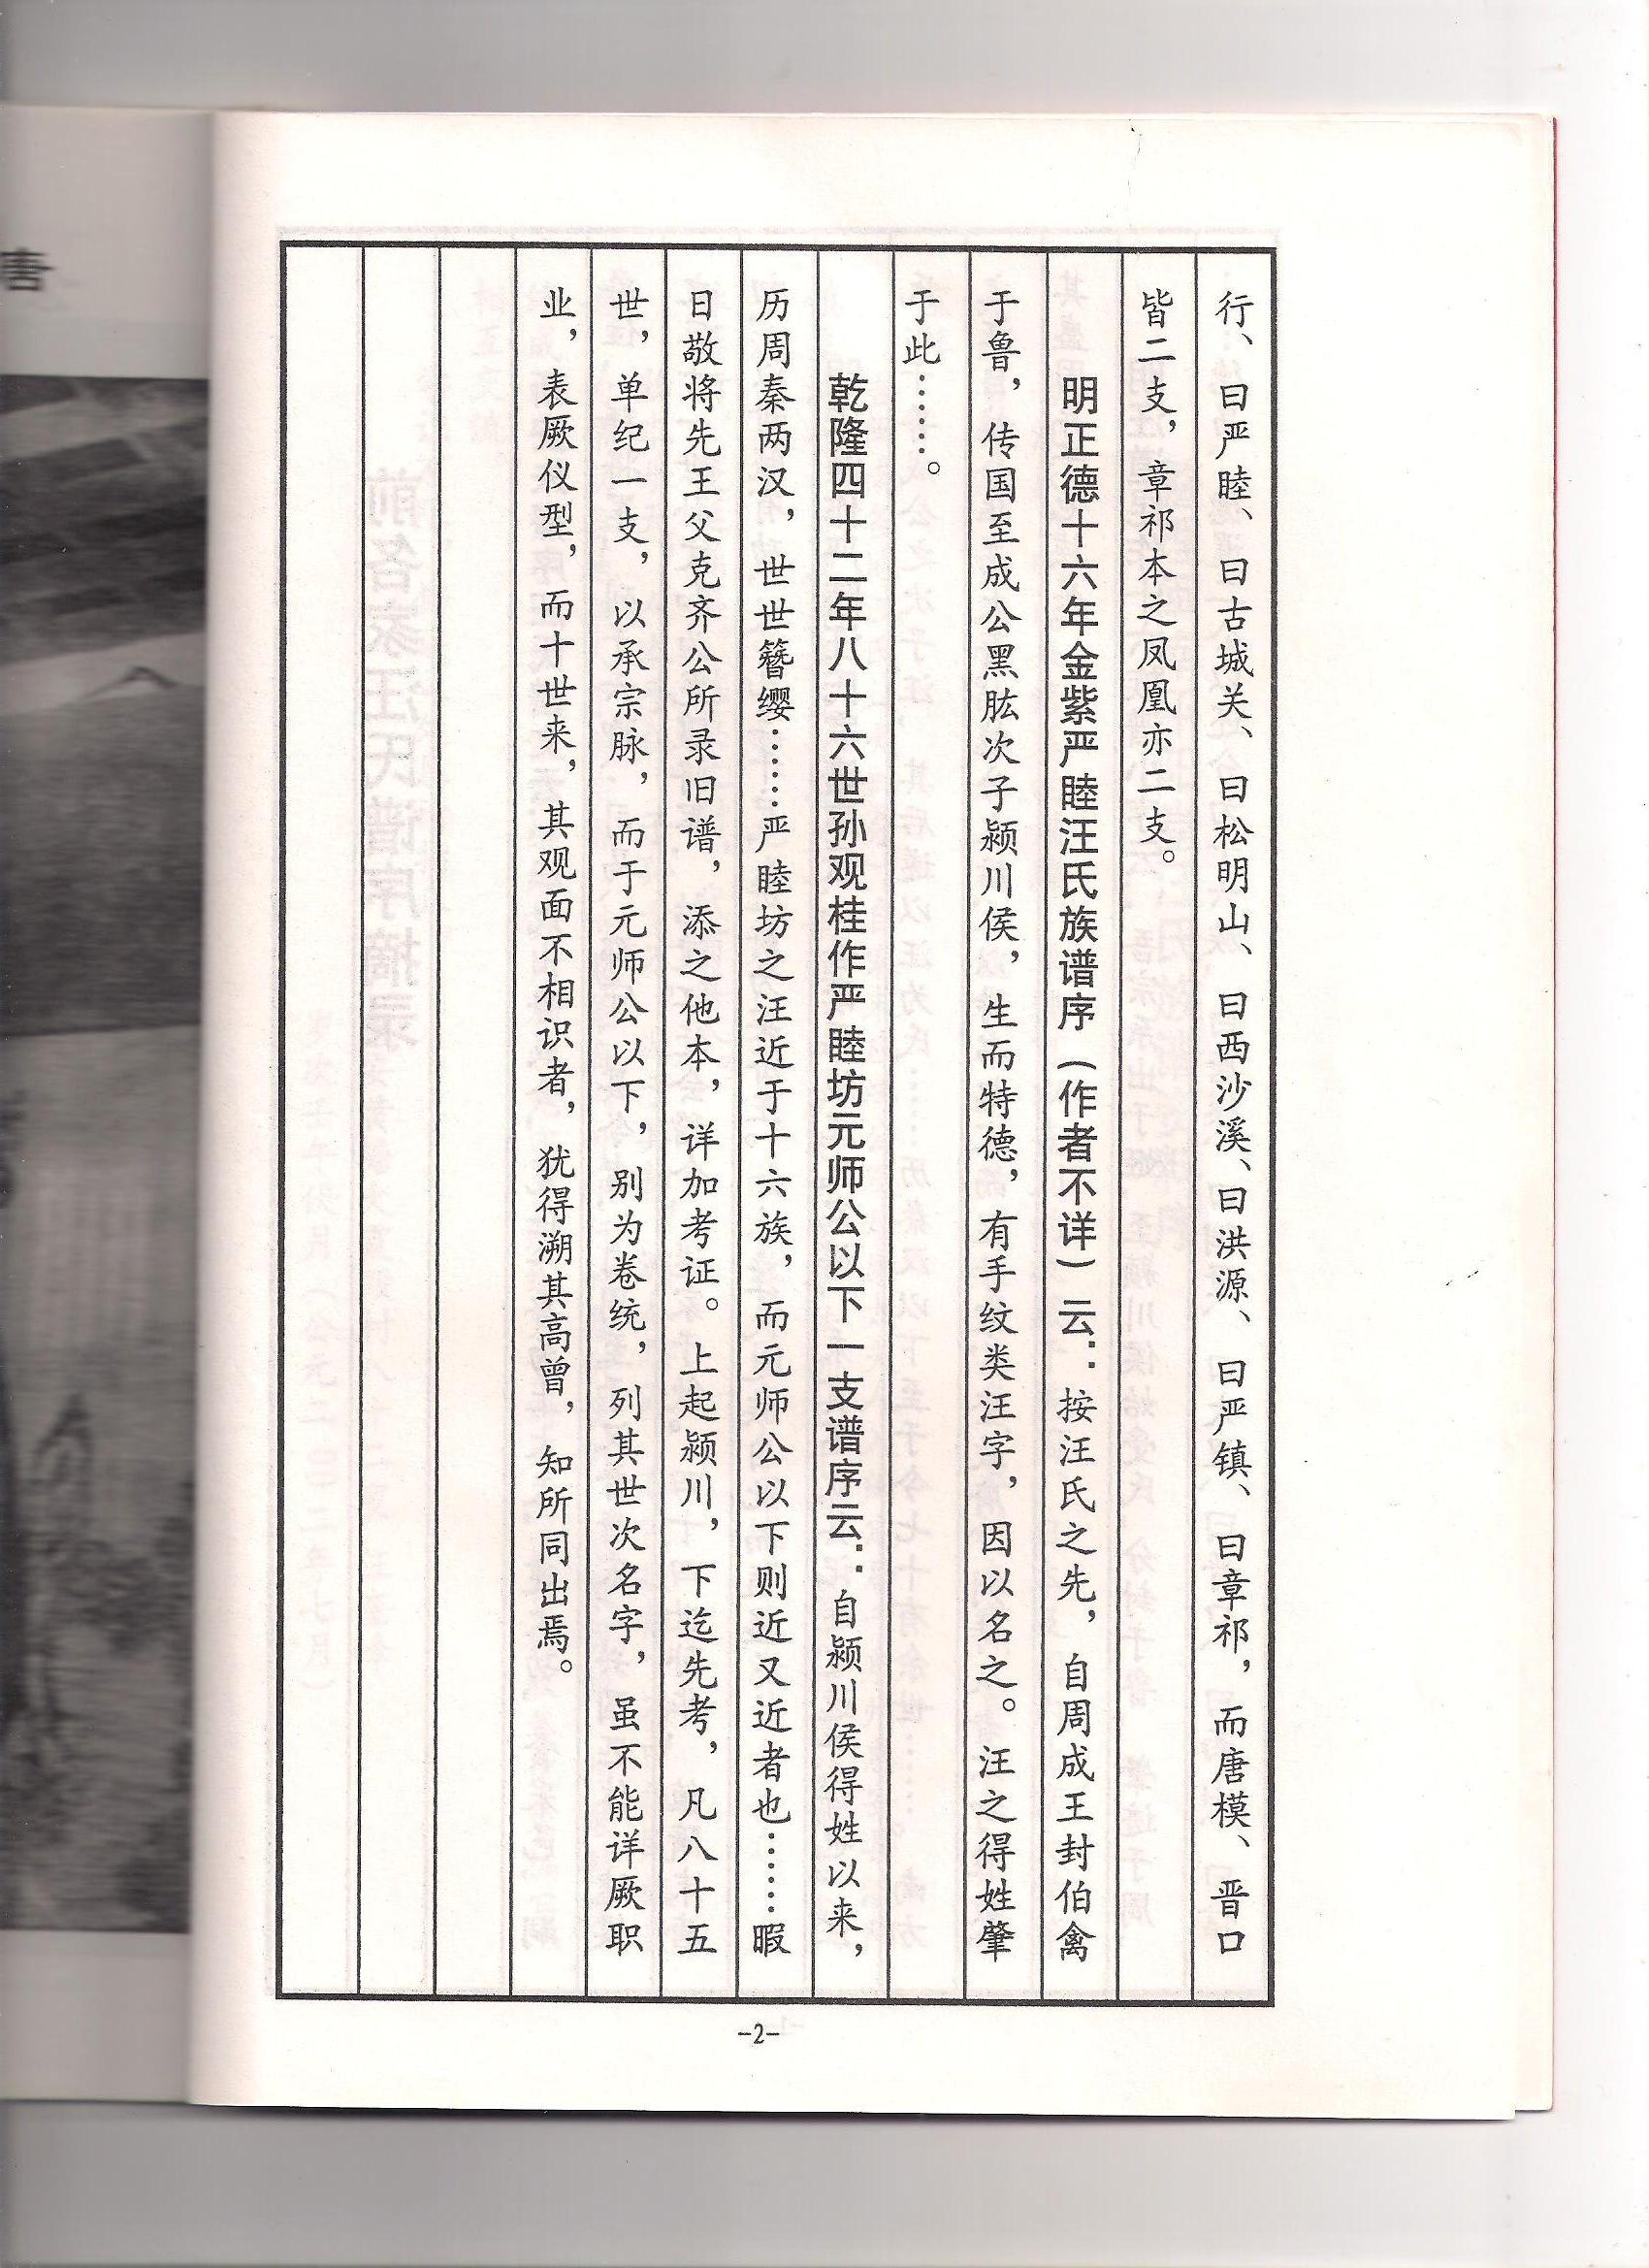 行、曰严睦、曰古城关、曰松明山、曰西沙溪、曰洪源、曰严镇、曰章祁，而唐模、晋口
皆二支，章祁本之凤凰亦二支。
明正德十六年金紫严睦汪氏族谱序（作者不详）云：按汪氏之先，自周成王封伯禽
于鲁，传国至成公黑肱次子颍川侯，生而特德，有手纹类汪字，因以名之。汪之得姓肇
于此……。
乾隆四十二年八十六世孙观桂作严睦坊元师公以下一支谱序云：自颍川侯得姓以来，
历周秦两汉，世世簪缨……严睦坊之汪近于十六族，而元师公以下则近又近者也……暇
日敬将先王父克齐公所录旧谱，添之他本，详加考证。上起颍川，下迄先考，凡八十五
世，单纪一支，以承宗脉，而于元师公以下，别为卷统，列其世次名字，虽不能详厥职
业，表厥仪型，而十世来，其观面不相识者，犹得溯其高曾，知所同出焉。
-2-
唐